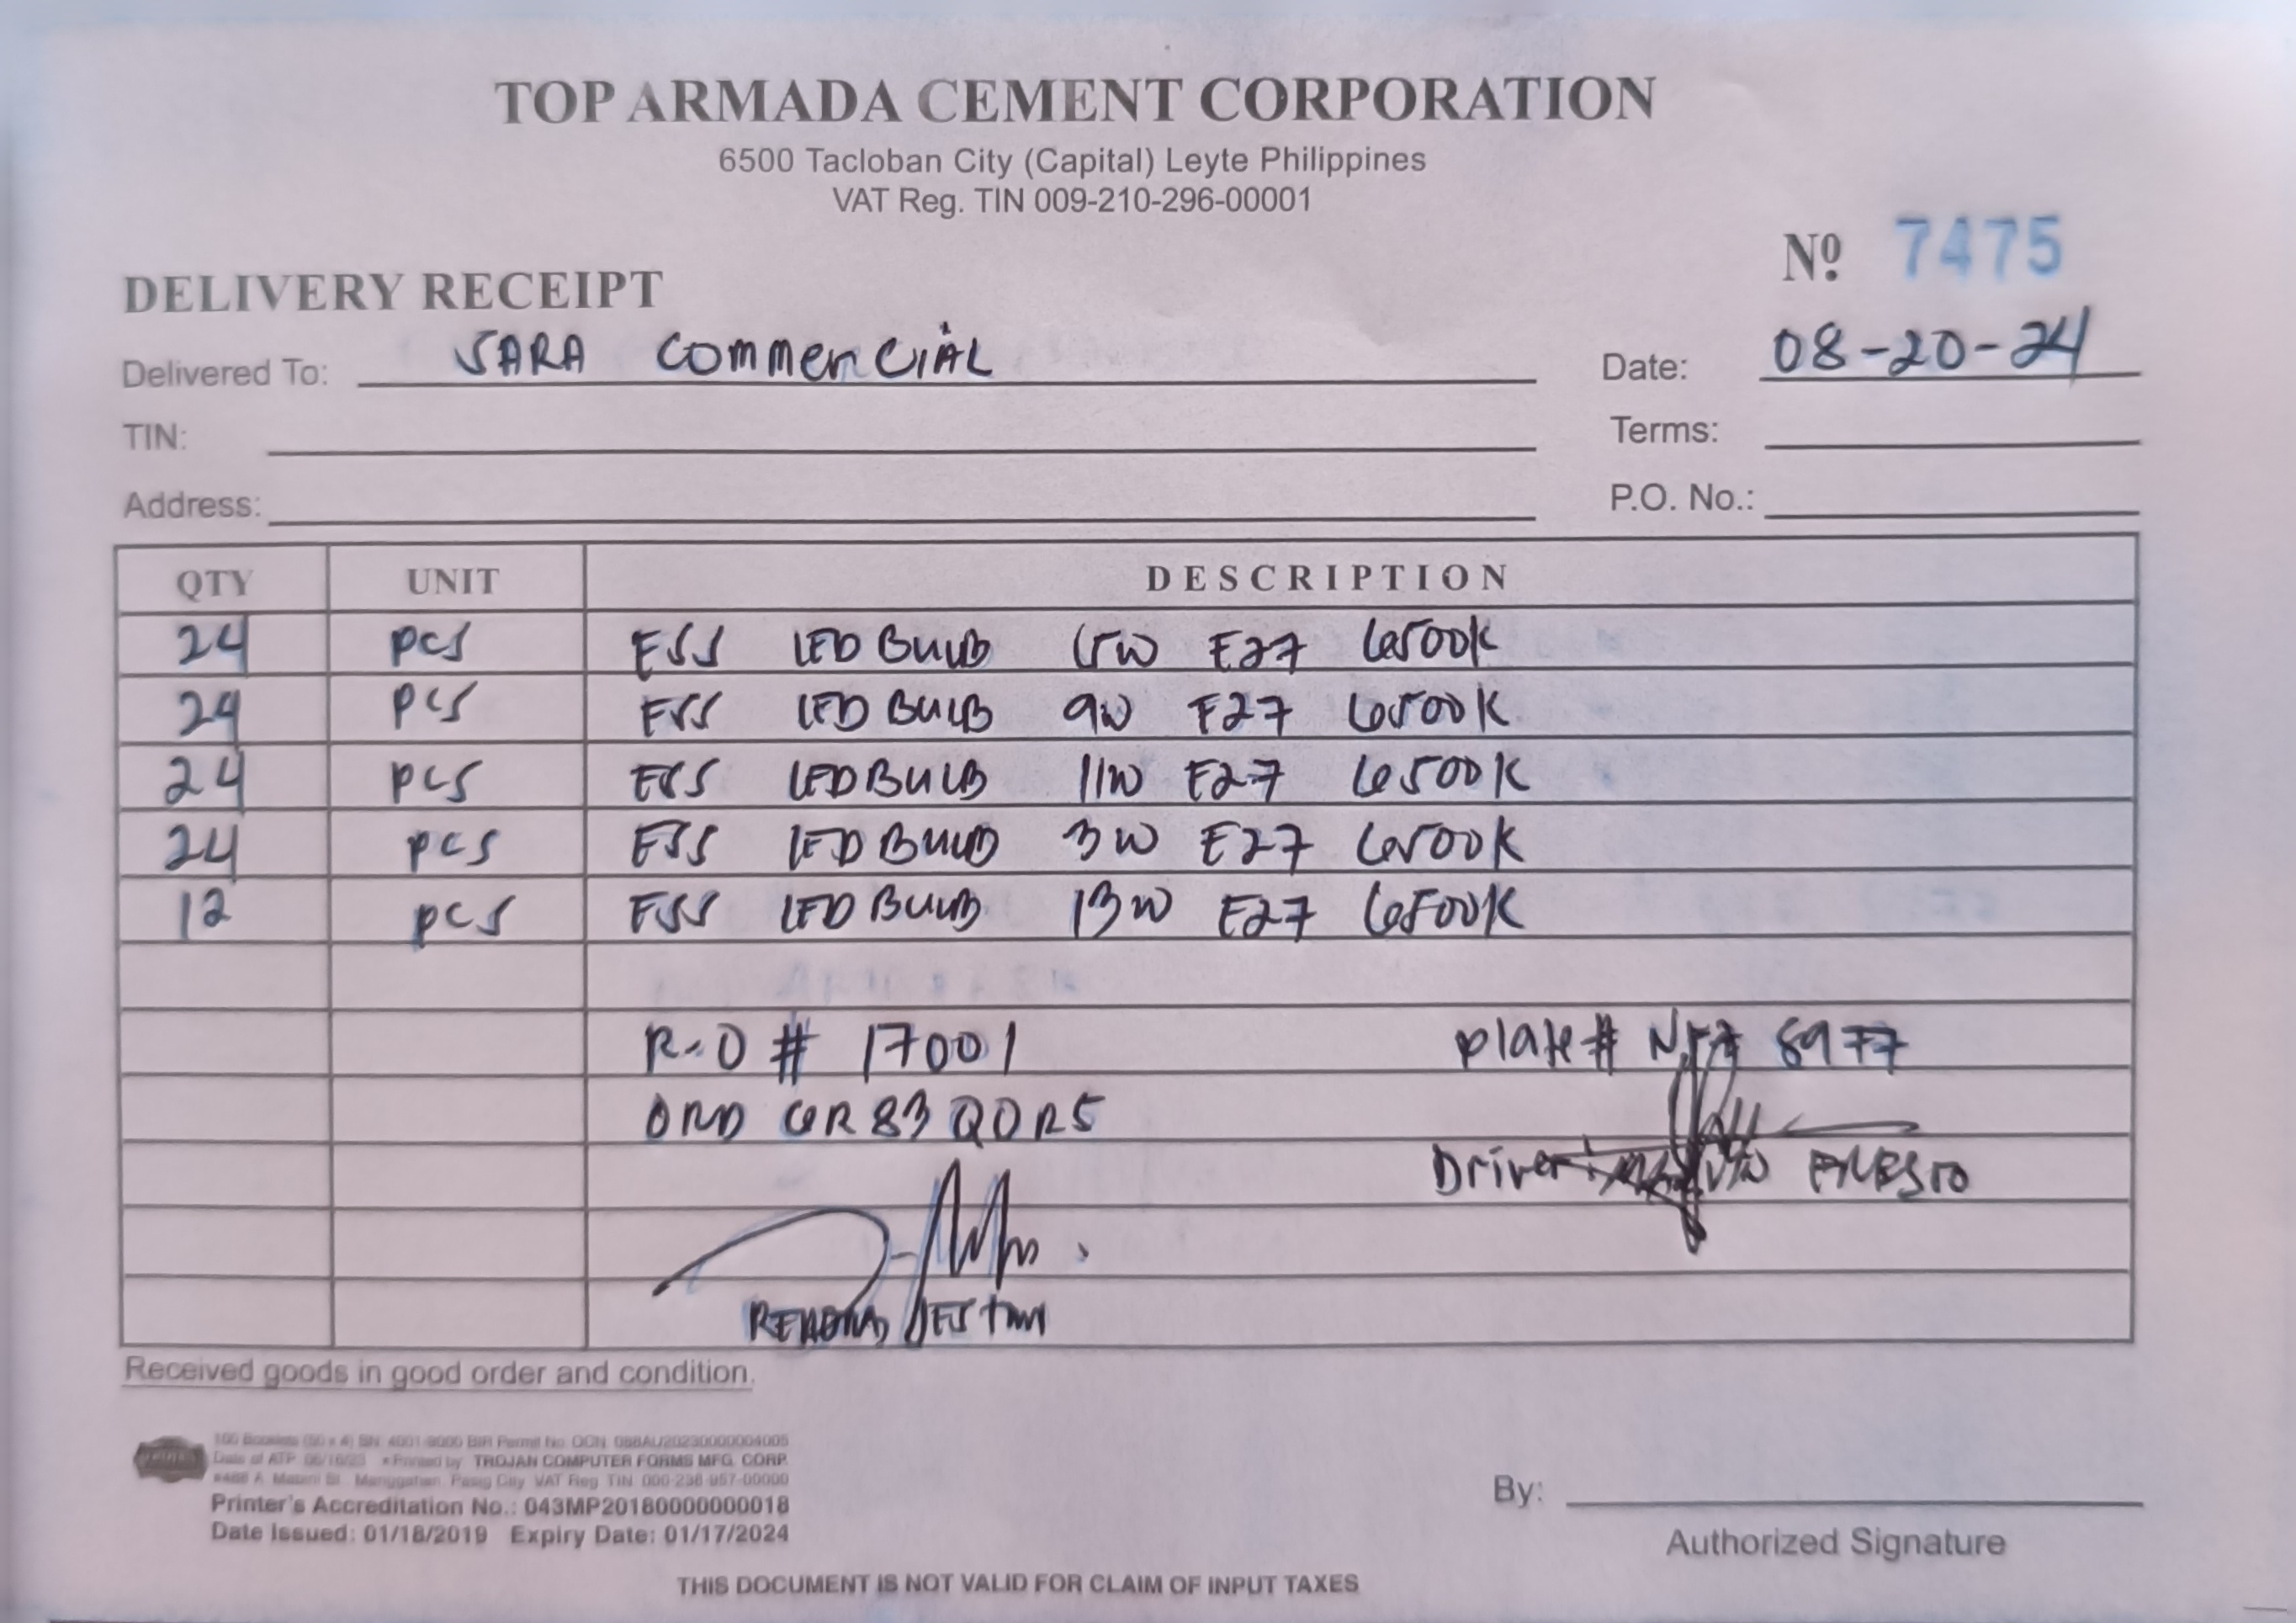 TOP ARMADA CEMENT CORPORATION
6500 Tacloban City (Capital) Leyte Philippines
VAT Reg. TIN 009-210-296-00001
Nº 7475
DELIVERY RECEIPT
Delivered To: SARA Commercial Date: 08-20-24
TIN: Terms:
Address: P.O. No.:
QTY UNIT DESCRIPTION
24 pcs ESS LED Bulb 15W E27 6500K
24 pcs ESS LED Bulb 9W E27 6500K
24 pcs ESS LED Bulb 11W E27 6500K
24 pcs ESS LED Bulb 3W E27 6500K
12 pcs ESS LED Bulb 13W E27 6500K
R-O # 17001 Plate# 8977
ORD GR83QOR5
Driver:
Received goods in good order and condition.
100 Booklets (50 x 4) SN: 4001-9000 BIR Permit No. OCN 088AU20230000004005
Date of ATP 06/16/23 • Printed by TROJAN COMPUTER FORMS MFG. CORP.
Manggahan, Pasig City VAT Reg TIN 000-238-957-00000
Printer's Accreditation No.: 043MP20180000000018
Date Issued: 01/18/2019 Expiry Date: 01/17/2024
By:
Authorized Signature
THIS DOCUMENT IS NOT VALID FOR CLAIM OF INPUT TAXES